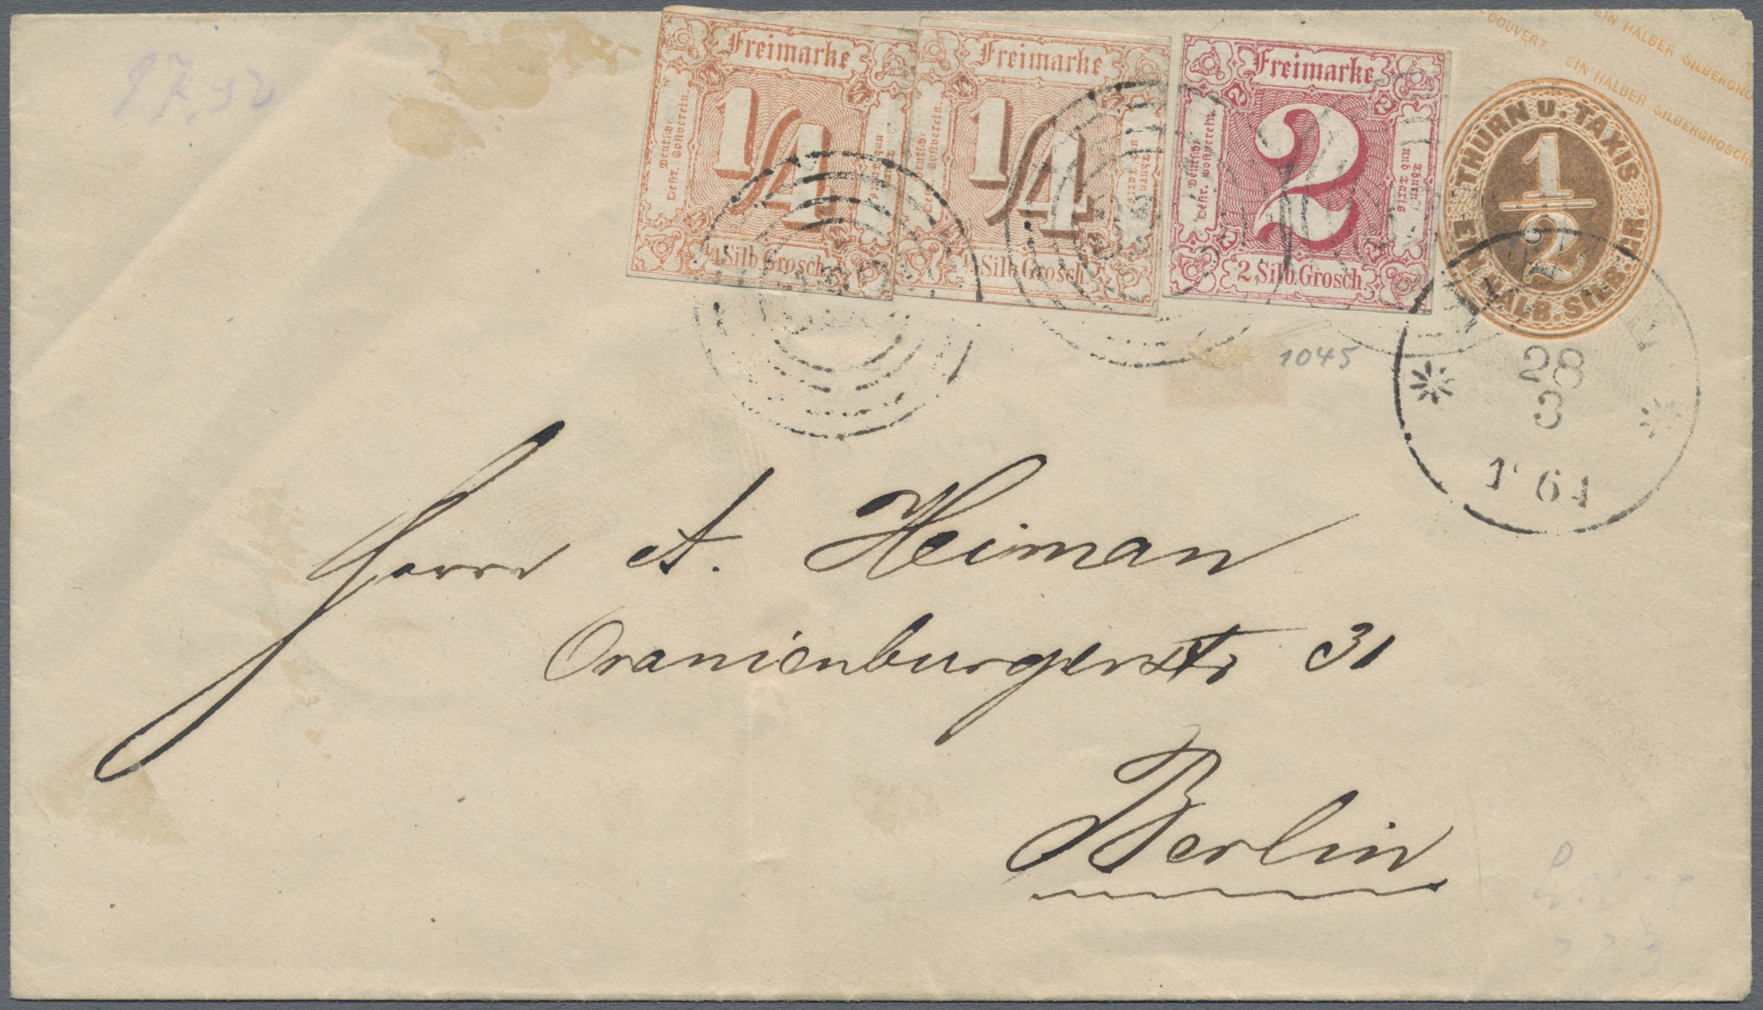 97,50
Freimarke
1/4
1/4 Silb. Grosch.
Deutsch-
Oestr. Postverein.
Freimarke
1/4
1/4 Silb. Grosch.
Deutsch-
Oestr. Postverein.
Thurn
und Taxis
Freimarke
2
2, Silb. Grosch.
Deutsch-
Oestr. Postverein.
Thurn
und Taxis
COUVERT
EIN HALBER SILBERGRO
EIN HALBER SILBERGROSCH
THURN U. TAXIS
1/2
EIN HALB. SILB. GR.
1045
28
3
61
Herrn A. Heiman
Oranienburgerstr 31
Berlin